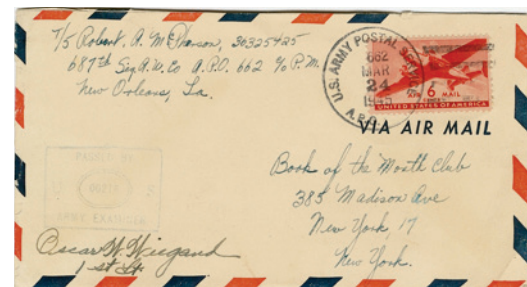 T/5 Robert. A. McPherson, 36325425
687th Sig A.W. Co A.P.O. 662 c/o P.M.
New Orleans, La.
U.S. ARMY POSTAL SERVICE
662
MAR
24
1945
A.P.O.
6¢ AIR MAIL
UNITED STATES OF AMERICA
VIA AIR MAIL
PASSED BY
ARMY EXAMINER
Book of the Month Club
385 Madison Ave
New York, 17
New York.
Oscar W. Wiegand
1st Lt